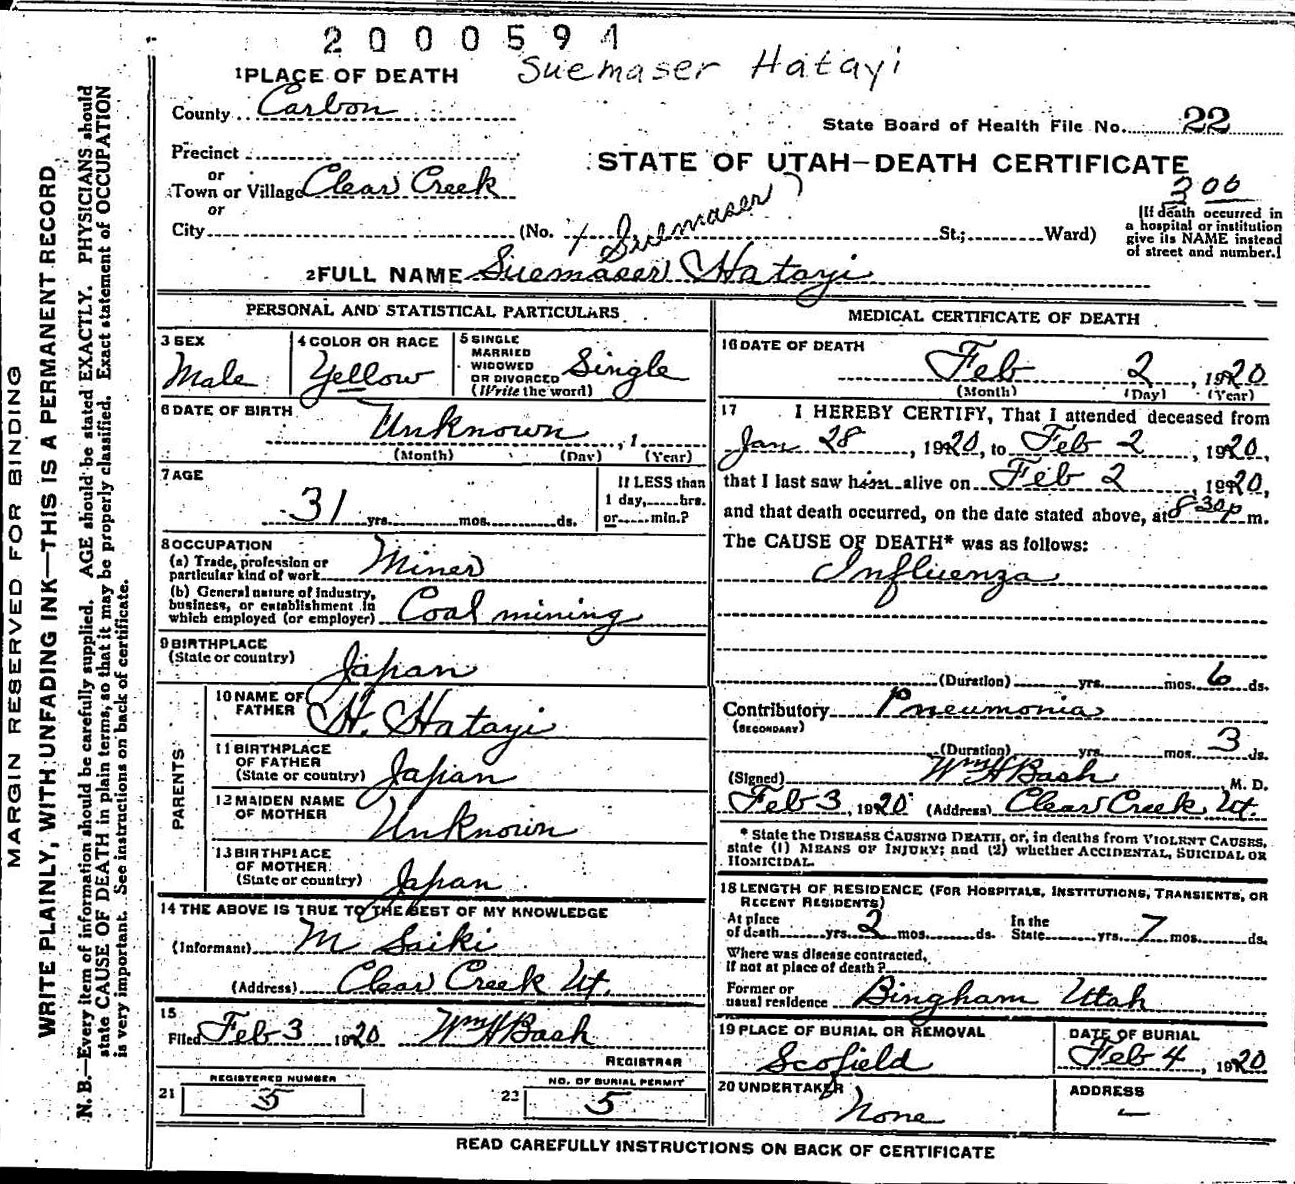 2000594
Suemaser Hatayi
1 PLACE OF DEATH
County Carbon
State Board of Health File No. 22
Precinct
or
Town or Village Clear Creek
or
City
STATE OF UTAH—DEATH CERTIFICATE
300
(No. St.; Ward)
[If death occurred in
a hospital or institution
give its NAME instead
of street and number.]
Suemaser ?
2 FULL NAME Suemaser Hatayi
PERSONAL AND STATISTICAL PARTICULARS
3 SEX
Male
4 COLOR OR RACE
Yellow
5 SINGLE
MARRIED
WIDOWED
OR DIVORCED
(Write the word)
Single
6 DATE OF BIRTH
Unknown , 1
(Month) (Day) (Year)
7 AGE
31 yrs. mos. ds.
If LESS than
1 day, hrs.
or min.?
8 OCCUPATION
(a) Trade, profession or
particular kind of work Miner
(b) General nature of industry,
business, or establishment in
which employed (or employer) Coal mining
9 BIRTHPLACE
(State or country) Japan
PARENTS
10 NAME OF
FATHER H. Hatayi
11 BIRTHPLACE
OF FATHER
(State or country) Japan
12 MAIDEN NAME
OF MOTHER Unknown
13 BIRTHPLACE
OF MOTHER
(State or country) Japan
14 THE ABOVE IS TRUE TO THE BEST OF MY KNOWLEDGE
(Informant) M Saiki
(Address) Clear Creek Ut.
15
Filed Feb 3 1920 Wm H Bash
REGISTRAR
21 REGISTERED NUMBER
5
22 NO. OF BURIAL PERMIT
5
MEDICAL CERTIFICATE OF DEATH
16 DATE OF DEATH
Feb 2, 1920
(Month) (Day) (Year)
17 I HEREBY CERTIFY, That I attended deceased from
Jan 28, 1920, to Feb 2, 1920,
that I last saw him alive on Feb 2, 1920,
and that death occurred, on the date stated above, at 8 30p m.
The CAUSE OF DEATH* was as follows:
Influenza
(Duration) yrs. mos. 6 ds.
Contributory Pneumonia
(SECONDARY)
(Duration) yrs. mos. 3 ds.
(Signed) Wm H Bash M. D.
Feb 3, 1920 (Address) Clear Creek Ut.
* State the DISEASE CAUSING DEATH, or, in deaths from VIOLENT CAUSES,
state (1) MEANS OF INJURY; and (2) whether ACCIDENTAL, SUICIDAL OR
HOMICIDAL.
18 LENGTH OF RESIDENCE (FOR HOSPITALS, INSTITUTIONS, TRANSIENTS, OR
RECENT RESIDENTS)
At place
of death yrs. 2 mos. ds.
In the
State yrs. 7 mos. ds.
Where was disease contracted,
if not at place of death?
Former or
usual residence Bingham Utah
19 PLACE OF BURIAL OR REMOVAL
Scofield
DATE OF BURIAL
Feb 4, 1920
20 UNDERTAKER
None
ADDRESS
—
READ CAREFULLY INSTRUCTIONS ON BACK OF CERTIFICATE
MARGIN RESERVED FOR BINDING
WRITE PLAINLY, WITH UNFADING INK—THIS IS A PERMANENT RECORD
N. B.—Every item of information should be carefully supplied. AGE should be stated EXACTLY. PHYSICIANS should
state CAUSE OF DEATH in plain terms, so that it may be properly classified. Exact statement of OCCUPATION
is very important. See instructions on back of certificate.